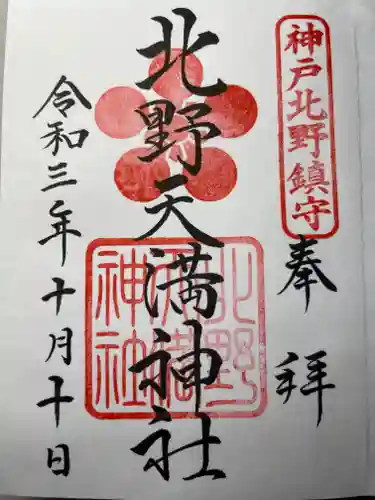 神戸北野鎮守
奉拝
北野天満神社
北野天満神社
令和三年十月十日